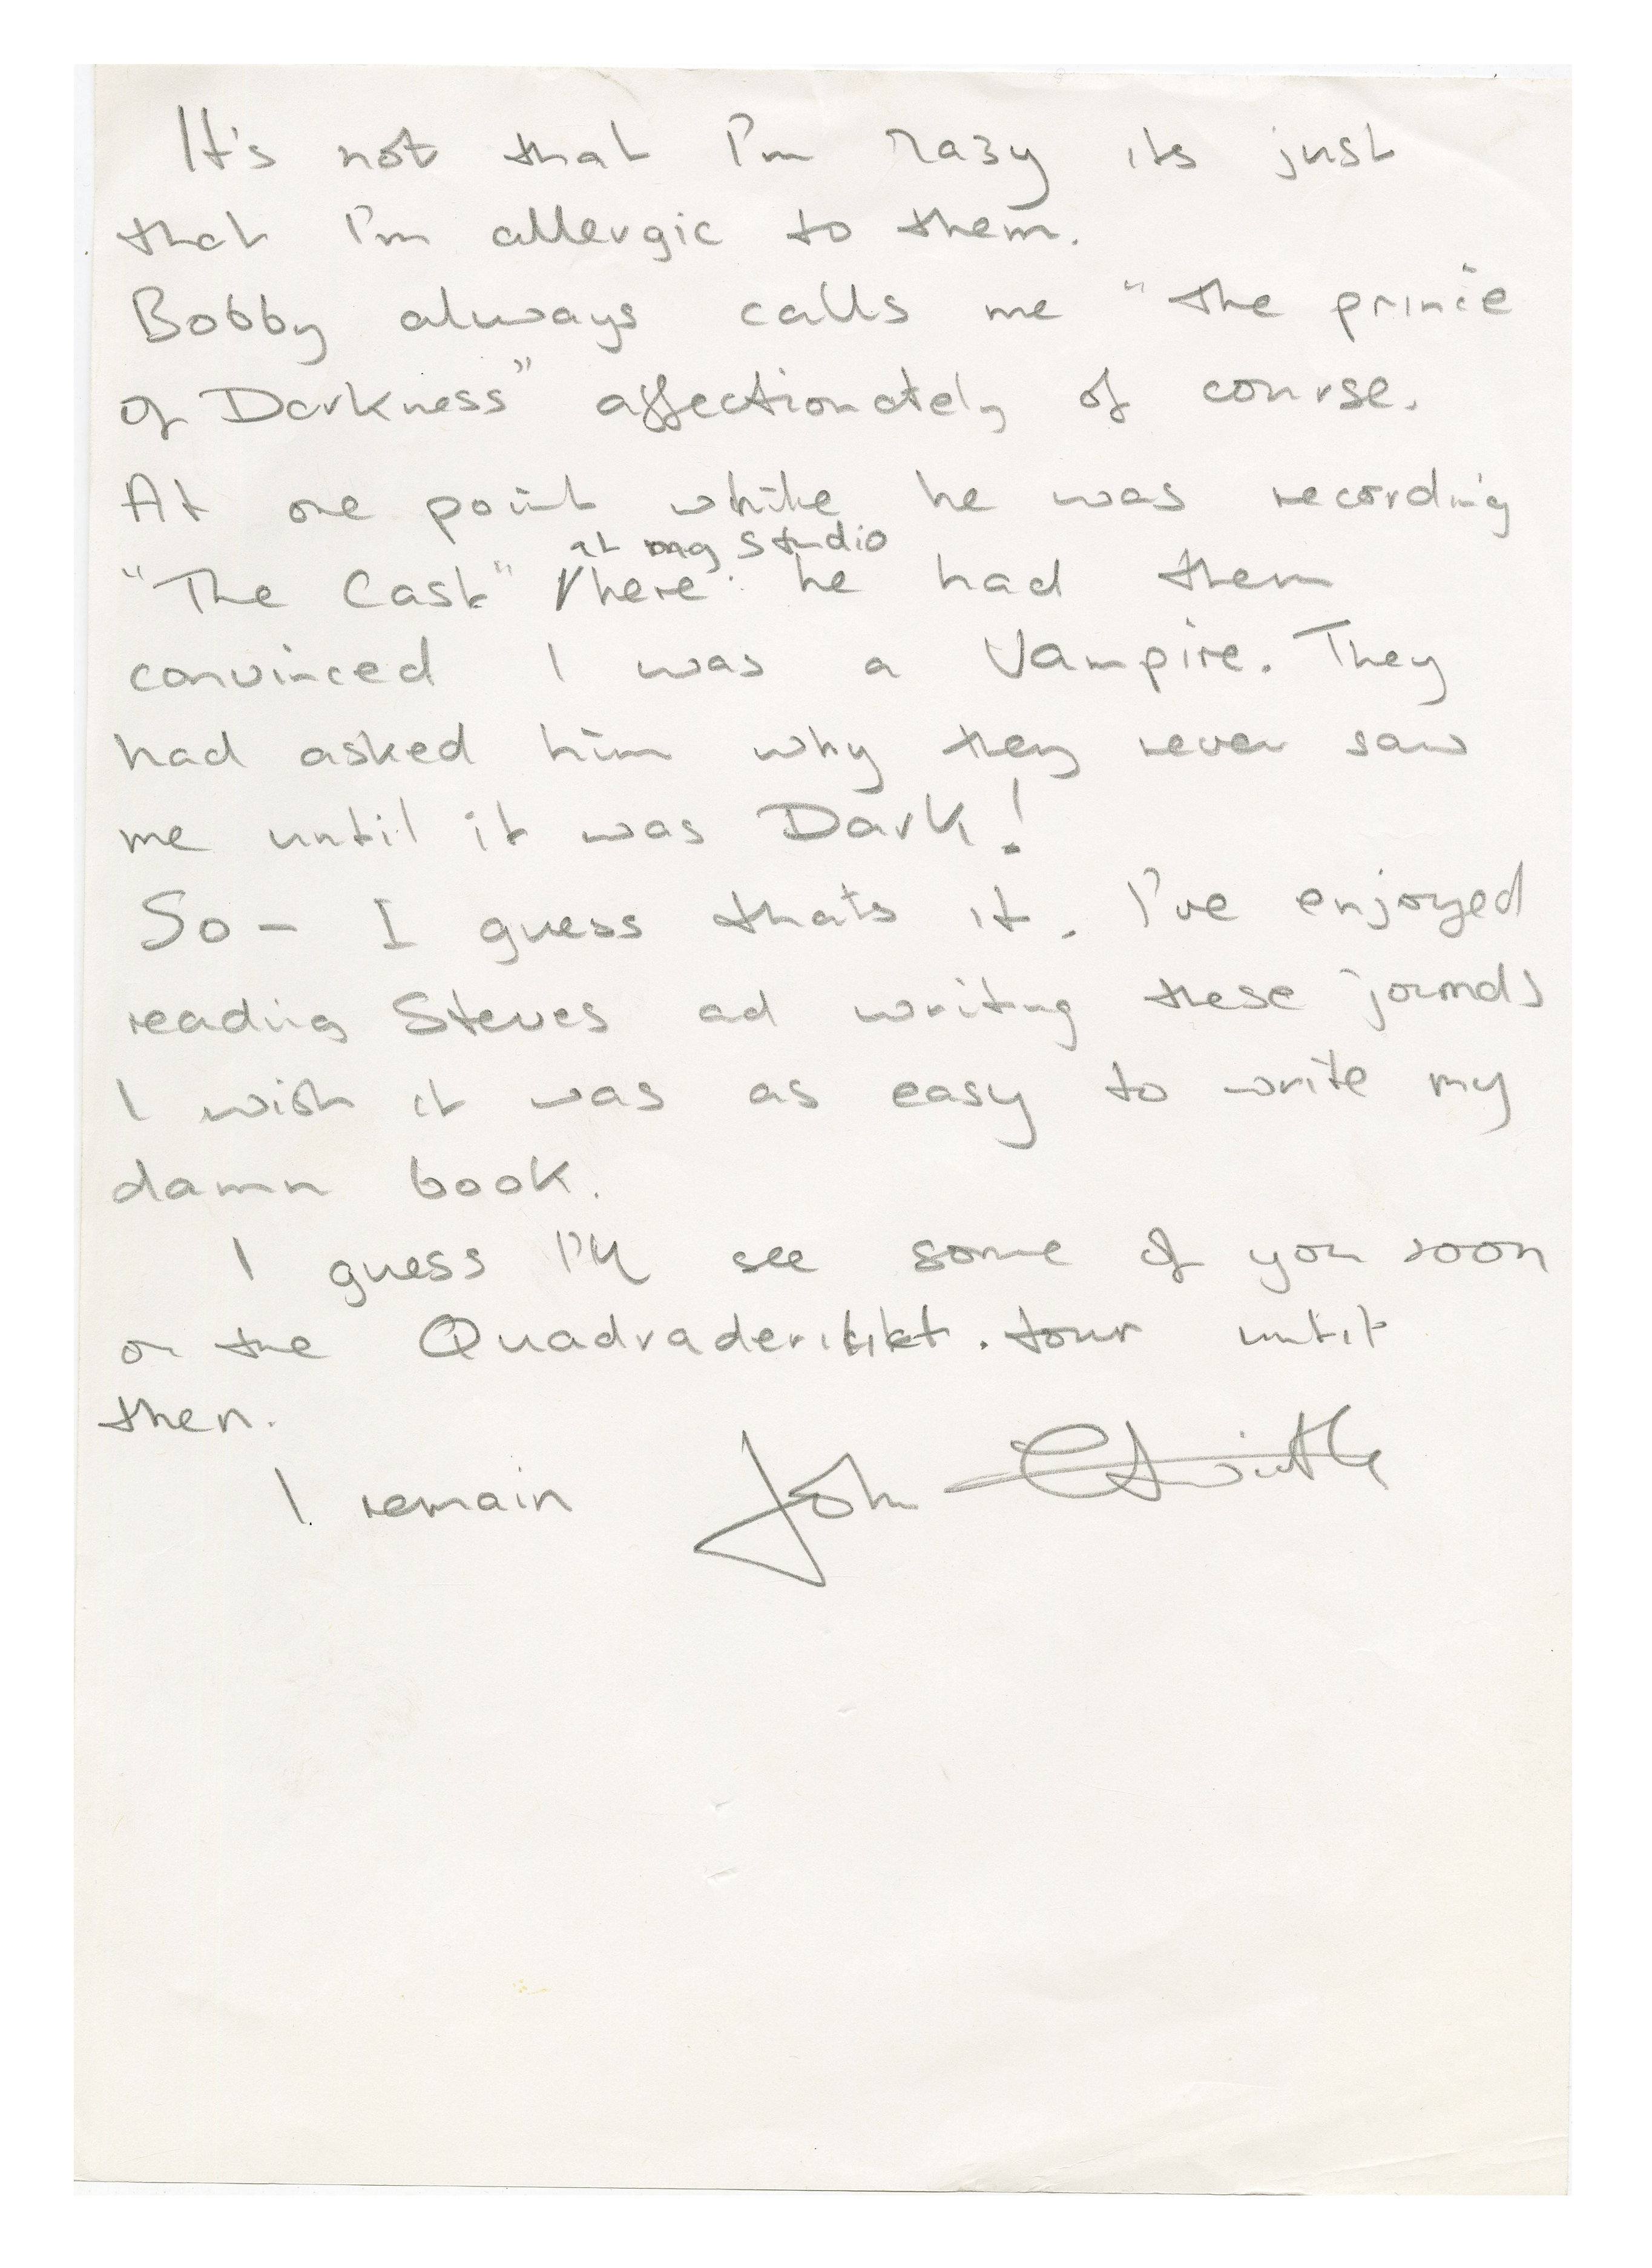 It's not that I'm lazy its just
that I'm allergic to them.
Bobby always calls me "the prince
of Darkness" affectionately of course.
At one point while he was recording
at my studio
"The Cast" here he had them
convinced I was a Vampire. They
had asked him why they never saw
me until it was Dark!
So - I guess thats it. I've enjoyed
reading Steves ad writing these journals
I wish it was as easy to write my
damn book.
I guess I'll see some of you soon
on the tour until
then.
I remain John Entwistle